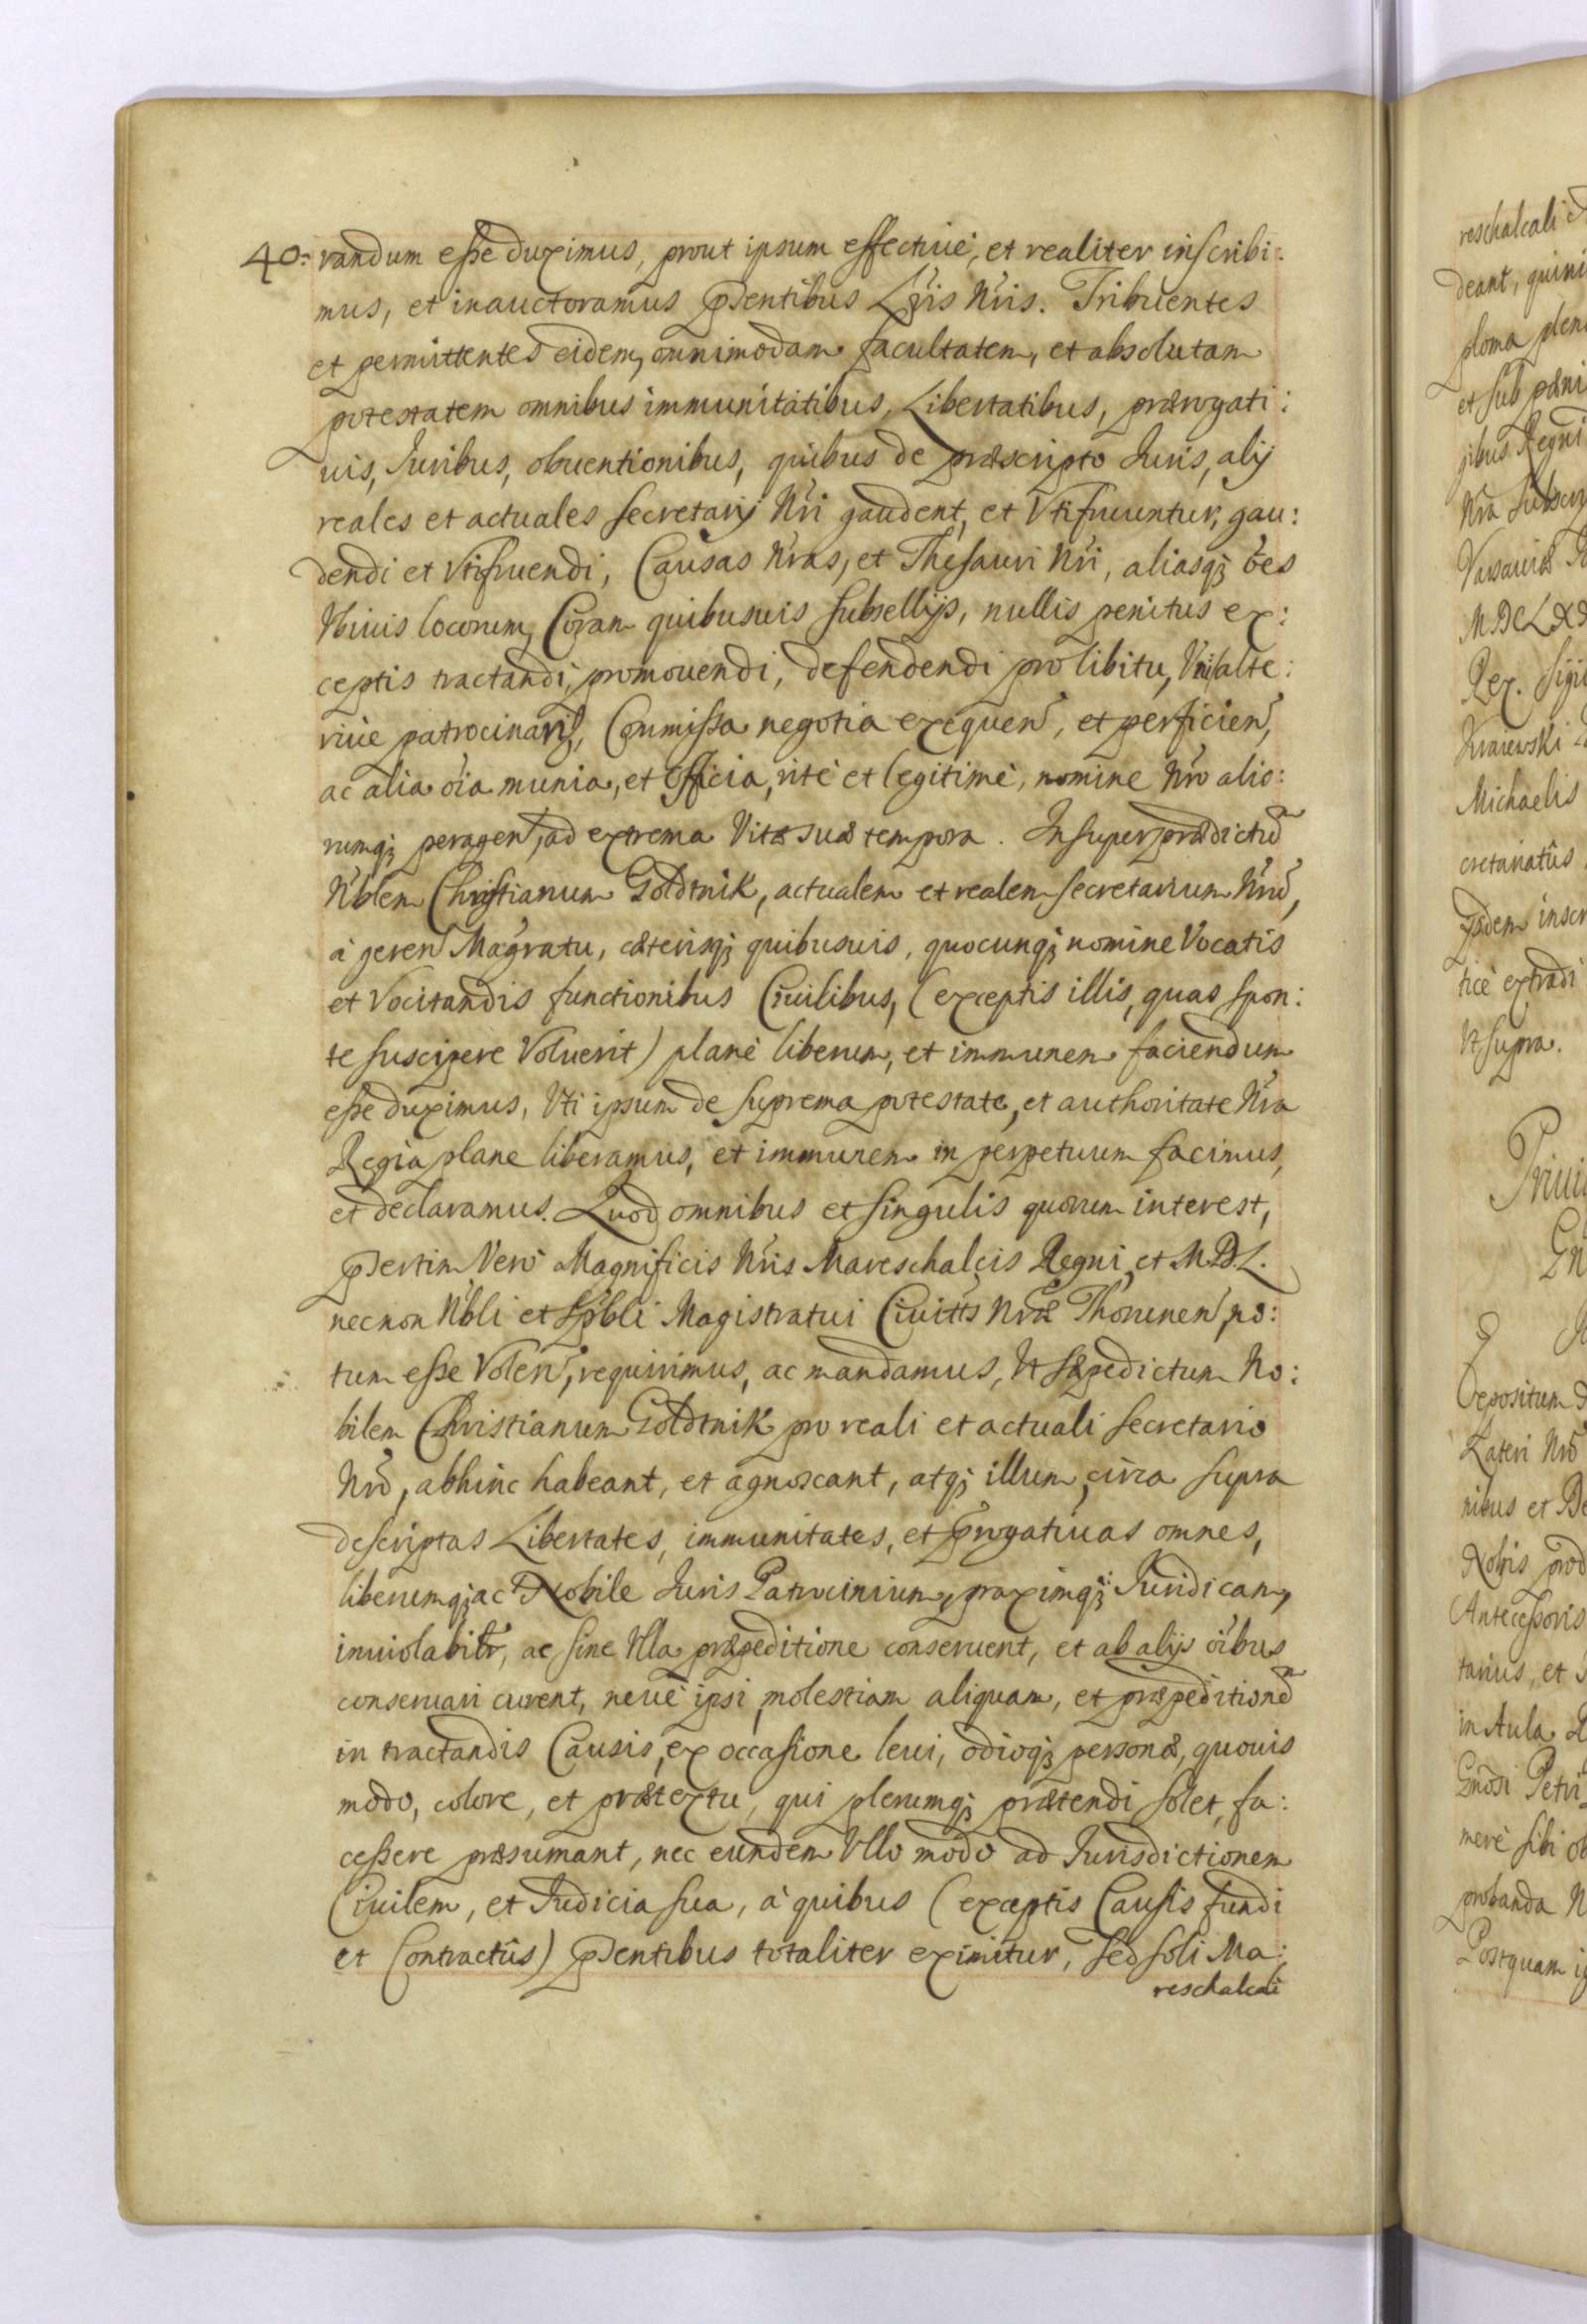 40: randum esse duximus, prout ipsum effectiuè, et realiter inscribi:
mus, et inauctoramus pntibus Lris Nris. Tribuentes
et permittentes eidem, omnimodam facultatem, et absolutam
potestatem omnibus immunitatibus, Libertatibus, prærogati:
uis, Iuribus, obuentionibus, quibus de præscripto Iuris, alij
reales et actuales Secretarij Nri gaudent, et Vtifruuntur, gau:
dendi et Vtifruendi, Causas Nras, et Thesauri Nri, aliasq; oes
Vbiuis locorum, Coram quibusuis Subsellijs, nullis penitus ex:
ceptis tractandi, promouendi, defendendi pro libitu, Vni alte:
riuè patrocinand, Commissa negotia exequen, et perficien,
ac alia oia munia, et Officia, ritè et legitimè, nomine Nro alio:
rumq; peragen, ad extrema Vitæ suæ tempora. Insuper prædictu
Nblem Christianum Goldtnik, actualem et realem Secretarium Nru,
à geren Magratu, cæterisq; quibusuis, quocunq; nomine Vocatis
et Vocitandis functionibus Ciuilibus, (exceptis illis, quas spon:
te suscipere Voluerit) planè liberum, et immunem faciendum
esse duximus, Vti ipsum de Suprema potestate, et authoritate Nra
Regia plane liberamus, et immunem in perpetuum facimus,
et declaramus. Quod omnibus et singulis quorum interest,
psertim Verò Magnificis Nris Mareschalcis Regni, et M.D.L.
necnon Nbli et Spbli Magistratui Ciuitts Nræ Thorunen, no:
tum esse Volen, requirimus, ac mandamus, Vt sæpedictum No:
bilem Christianum Goldtnik pro reali et actuali Secretario
Nro, abhinc habeant, et agnoscant, atq; illum, circa supra
descriptas Libertates, immunitates, et prrogatiuas omnes,
liberumq; ac Nobile Iuris Patrocinium, praximq; Iuridicam,
inuiolabilr, ac sine Vlla præpeditione conseruent, et ab alijs oibus
conseruari curent, neuè ipsi molestiam aliquam, et præpeditione
in tractandis Causis, ex occasione leui, odioq; personæ, quouis
modo, colore, et prætextu, qui plerumq; prætendi solet, fa:
cessere præsumant, nec eundem Vllo modo ad Iurisdictionem
Ciuilem, et Iudicia sua, à quibus (exceptis Causis fundi
et Contractûs) pntibus totaliter eximitur, Sed soli Ma:
reschalcali
reschalcali
deant, quini
ploma plen
et sub pæni
Regni
Nra Subscr
Varsauiæ
Rex.
Michaelis
cretariatûs
inscr
ticè extradi
Vt supra.
Depositum
Lateri Nro
nibus et
Nobis prod
Antecessoris
tarius, et
in Aula
Gnosi Petri
merè sibi
probanda
Postquam